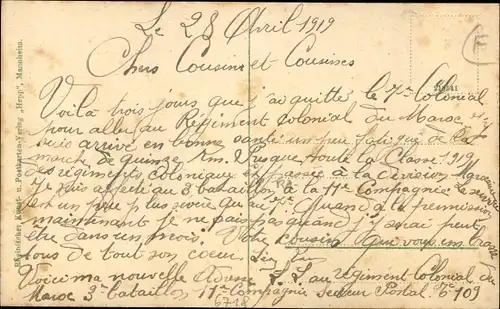 Le 28 Avril 1919
Chers Cousins et Cousines
Voilà trois jours que j'ai quitté le 7e Colonial
pour aller au Régiment Colonial du Maroc
suis arrivé en bonne santé un peu fatigué de la
marche de quinze Km. Presque toute la Classe 1919
des régiments coloniaux est passée à la division Marocaine
Je suis affecté au 3e bataillon à la 11e Compagnie Le service
est un peu plus sévère qu'au 7e Quand à la permission
maintenant je ne sais pas quand j'y serai peut
être dans un mois. Votre cousin qui vous embrasse
tous de tout son coeur.
Voici ma nouvelle Adresse au régiment colonial du
Maroc 3e bataillon 11e Compagnie secteur Postal 109
6718
Rheinischer Kunst- u. Postkarten-Verlag „Hepp", Mannheim.